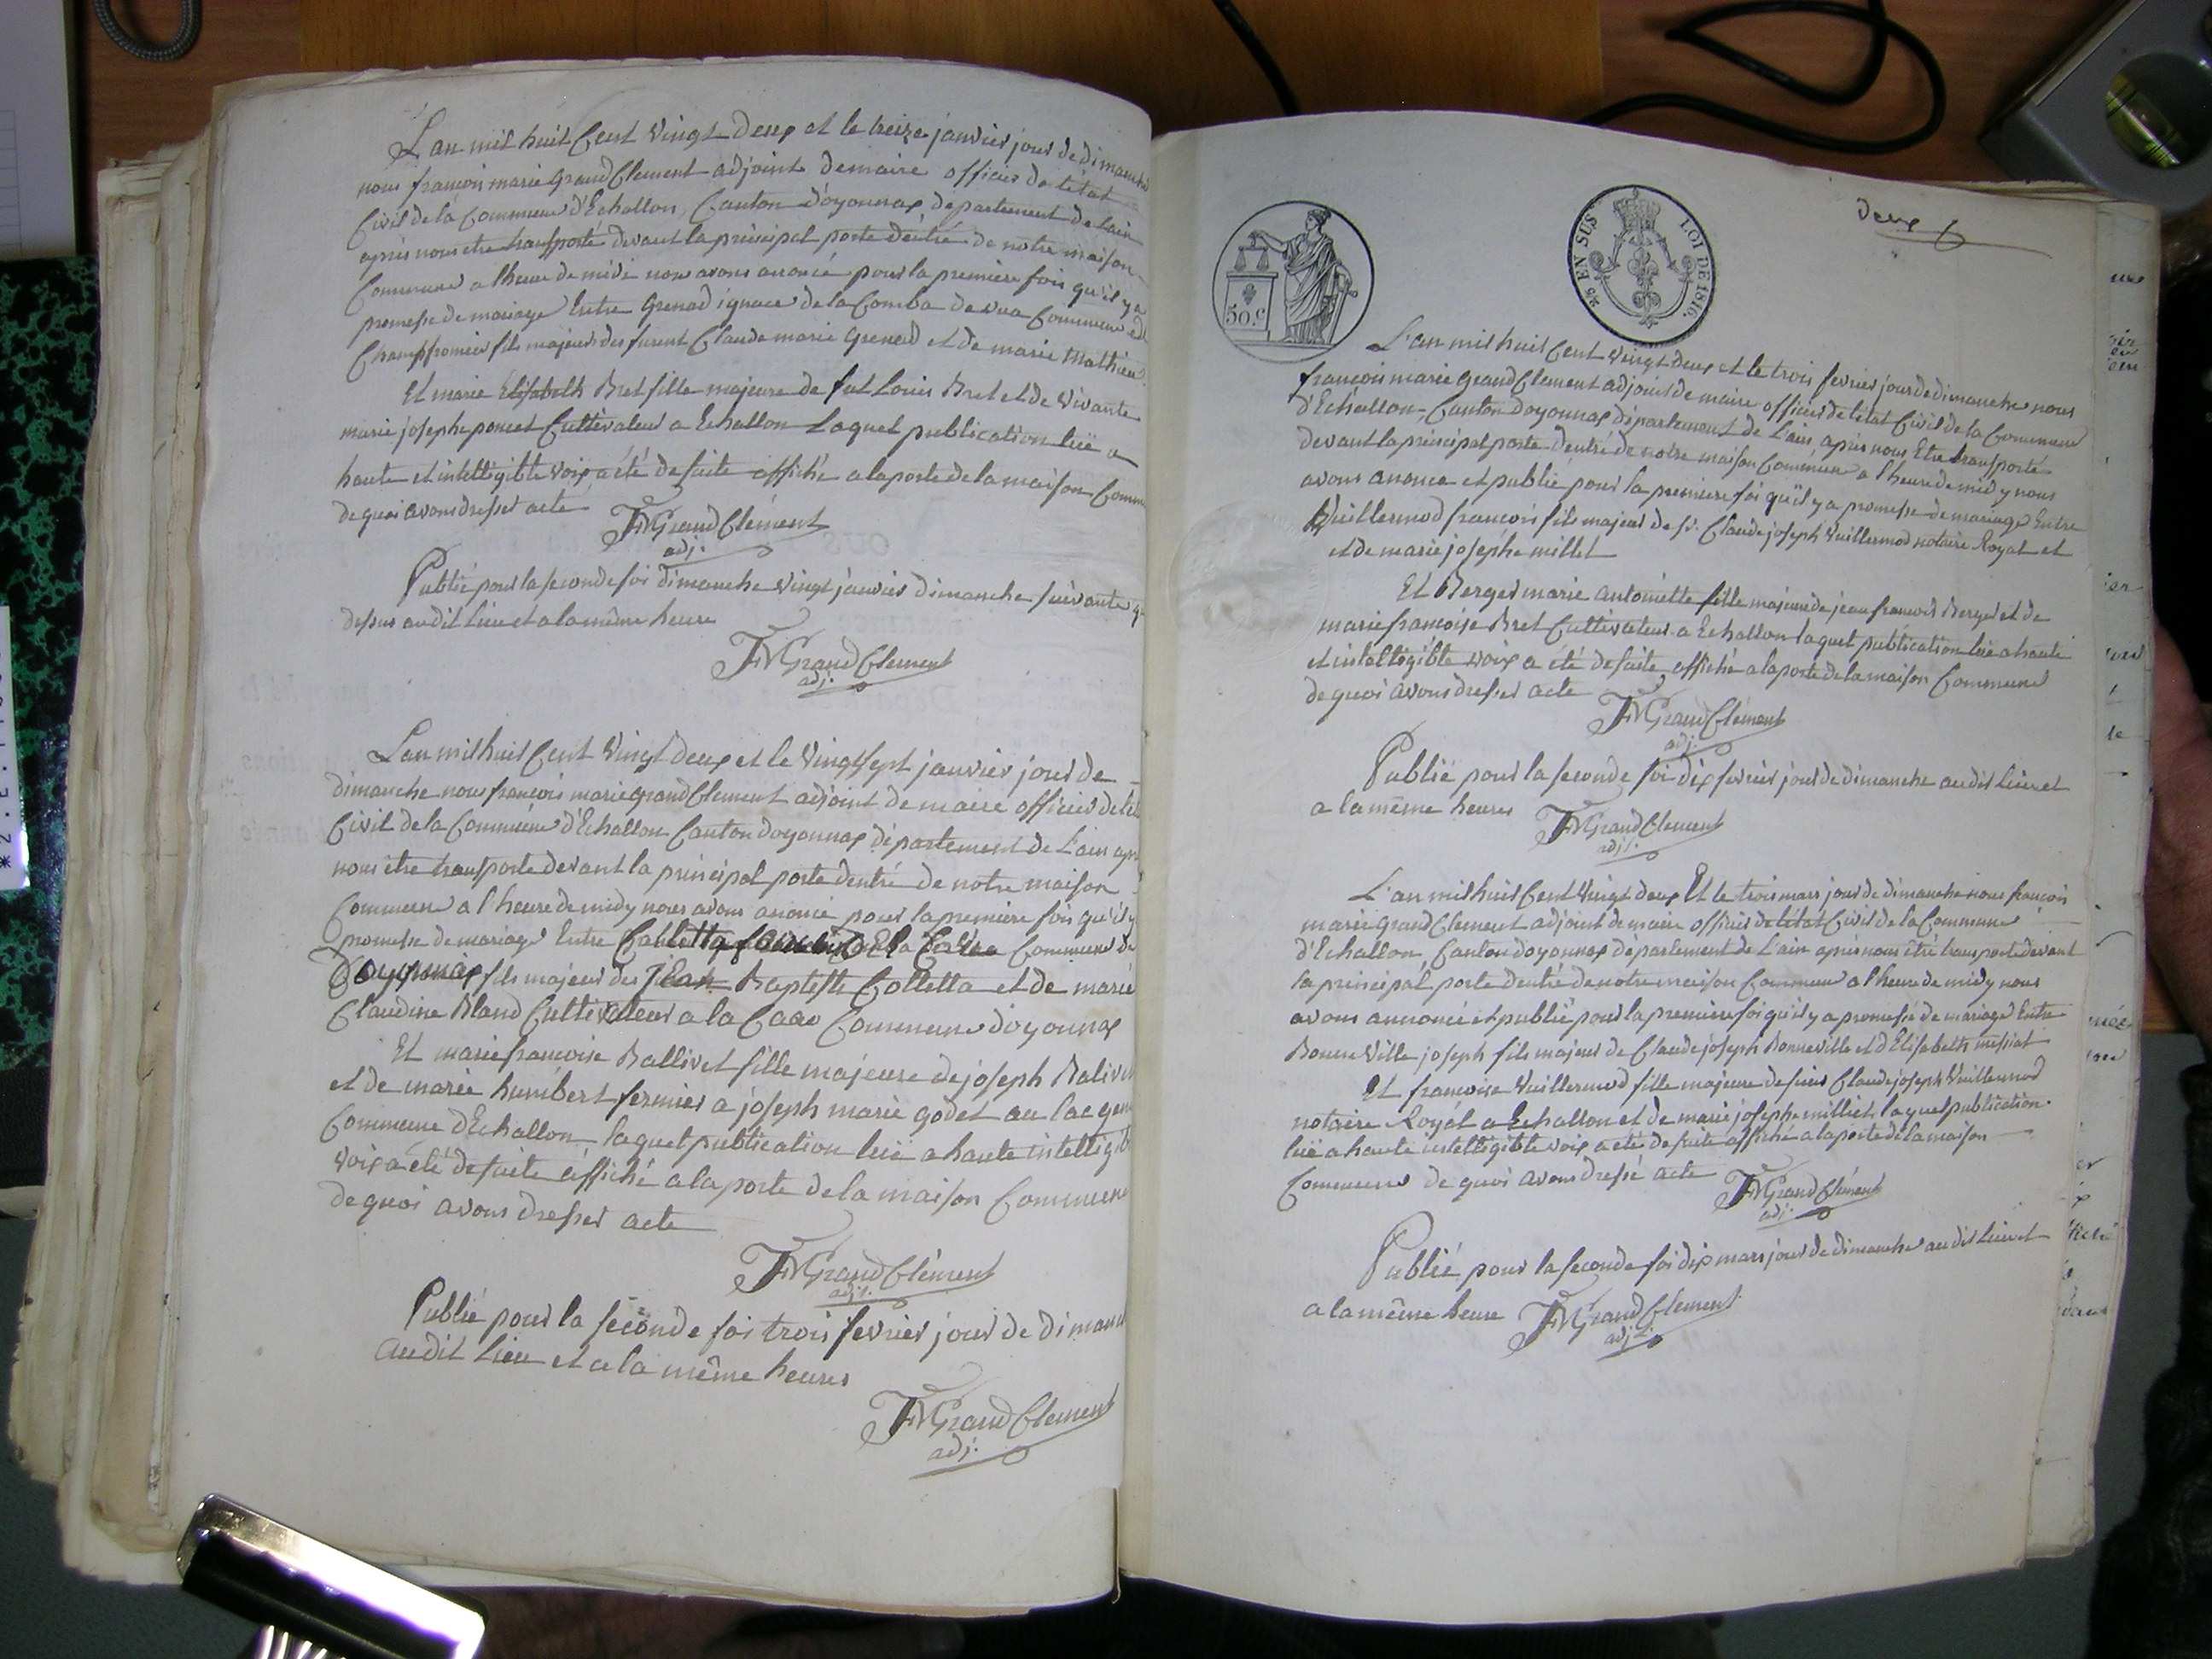 L'an mil huit Cent vingt deux et le treize janvier jour de dimanche
nous francois marie Grand Clement adjoint de maire officier de létat
Civil de la Commune d'Echallon, Canton d'oyonnax departement de lain
apres nous etre transporté devant la principal porte d'entré de notre maison
Commune a lheure de midi nous avons anoncé pour la premiere fois qu'il y a
promesse de mariage Entre Grenad ignace de la Comba de vua Commune de
Champfromier fils majeur des furent Claude marie Grenard et de marie Mathieu
Et marie Elisabeth Bret fille majeure de fut Louis Bret et de vivante
marie josephe poncet Cultivateur a Echallon Laquel publication luë a
haute et intelligible voix a été de suite affiché a la porte de la maison Comm
de quoi avons dresser acte
FMGrandClément
adj.
Publié pour la seconde foi dimanche vingt janvier dimanche suivante q
dessus audit Lieu et a la même heure
FMGrandClement
adj.
L'an mil huit Cent vingt deux et le vingt sept janvier jour de
dimanche nous francois marie grand Clement adjoint de maire officier de lét
Civil de la Commune d'Echallon Canton doyonnax département de L'ain apr
nous être transporte devant la principal porte dentré de notre maison
Commune a l'heure de midy nous avons anoncé pour la premiere fois qu'il y
promesse de mariage Entre Colletta Commune de
D'oyonnax fils majeur des Jean Baptiste Colletta et de marie
Claudine Bland Cultivateur a la Commune doyonnax
Et marie francoise Ballivet fille majeure de joseph Balivet
et de marie humbert fermier a joseph marie godet au lac gen
Commune d'Echallon laquel publication luë a haute intelligib
voix a été de suite affiché a la porte de la maison Commune
de quoi avons dresser acte
FMGrandClément
adj.
Publié pour la seconde foi trois fevrier jour de dimanc
audit Lieu et a la même heures
FMGrandClement
adj.
deux
50.C
25 EN SUS LOI DE 1816.
L'an mil huit Cent vingt deux et le trois fevrier jour de dimanche nous
francois marie grand Clement adjoint de maire officier de l'état Civil de la Commune
d'Echallon, Canton d'oyonnax département de L'ain apres nous Etre transporté
devant la principal porte dentré de notre maison Commune a l'heure de midy nous
avons anoncé et publié pour la premiere foi qu'il y a promesse de mariage Entre
Vuillermod francois fils majeur de sr. Claude joseph Vuillermod notaire Royal et
et de marie josephe millet
Et Berger marie antoinette fille majeure de jean francois Berger et de
marie francoise Bret Cultivateur a Echallon laquel publication luë a haute
et intelligible voix a été de suite affiché a la porte de la maison Commune
de quoi avons dresser acte
FMGrandClément
adj.
Publié pour la seconde foi dix fevrier jour de dimanche audit Lieu et
a la même heures
FMGrandClement
adj.
L'an mil huit Cent vingt deux Et le trois mars jour de dimanche nous francois
marie grand Clement adjoint de maire officier de létat Civil de la Commune
d'Echallon, Canton doyonnax département de L'ain apres nous être transporte devant
la principal porte dentré de notre maison Commune a l'heure de midy nous
avons annoncé et publié pour la premiere foi qu'il y a promesse de mariage Entre
Bonne Ville joseph fils majeur de Claude joseph Bonneville et d'Elisabeth messiat
Et francoise Vuillermod fille majeure de sieur Claude joseph Vuillermod
notaire Royal a Echallon et de marie josephe milliet laquel publication
luë a haute intelligible voix a été de suite affiché a la porte de la maison
Commune de quoi avons dressé acte
FMGrandClément
adj.
Publié pour la seconde foi dix mars jour de dimanche audit Lieu et
a la même heure
FMGrandClement
adj.